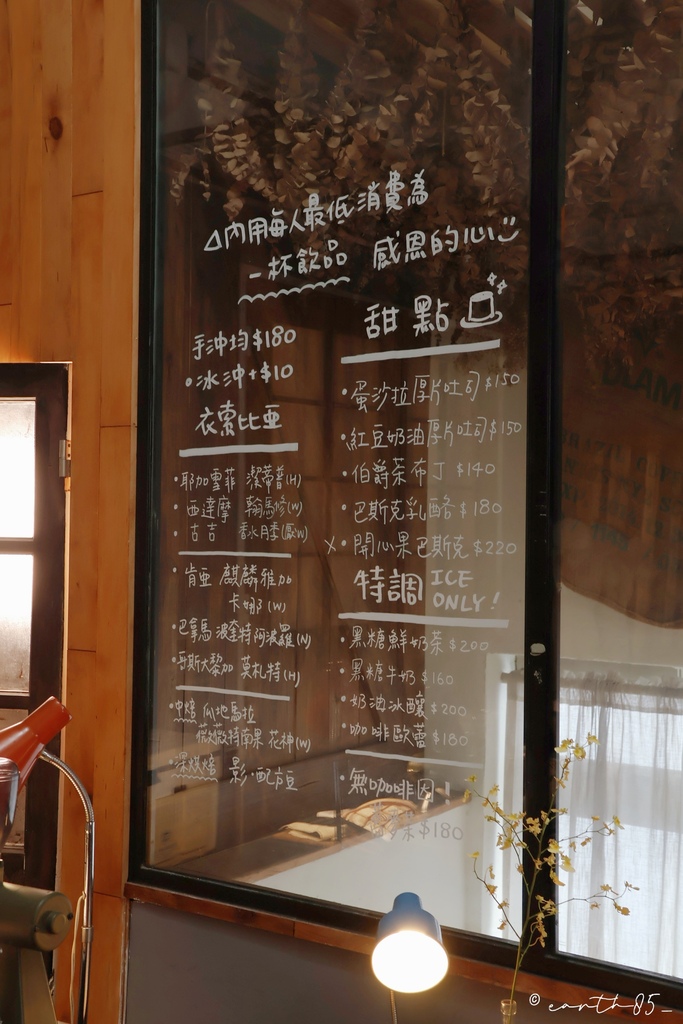 △內用每人最低消費為
一杯飲品 感恩的心
手沖均$180
•冰沖+$10
衣索比亞
•耶加雪菲 潔蒂普(H)
•西達摩 翰馬修(W)
•古吉 香水月季(厭W)
•肯亞 麒麟雅加
卡娜(W)
•巴拿馬 波奎特阿波羅(N)
•哥斯大黎加 莫札特(H)
•中焙 瓜地馬拉
薇薇特南果 花神(W)
•深烘焙 影·配方豆
甜點
•蛋沙拉厚片吐司$150
•紅豆奶油厚片吐司$150
•伯爵茶布丁 $140
•巴斯克乳酪 $180
x•開心果巴斯克$220
特調 ICE
ONLY!
•黑糖鮮奶茶$200
•黑糖牛奶$160
•奶油冰釀$200
•咖啡歐蕾$180
•無咖啡因
茶$180
© earth85_